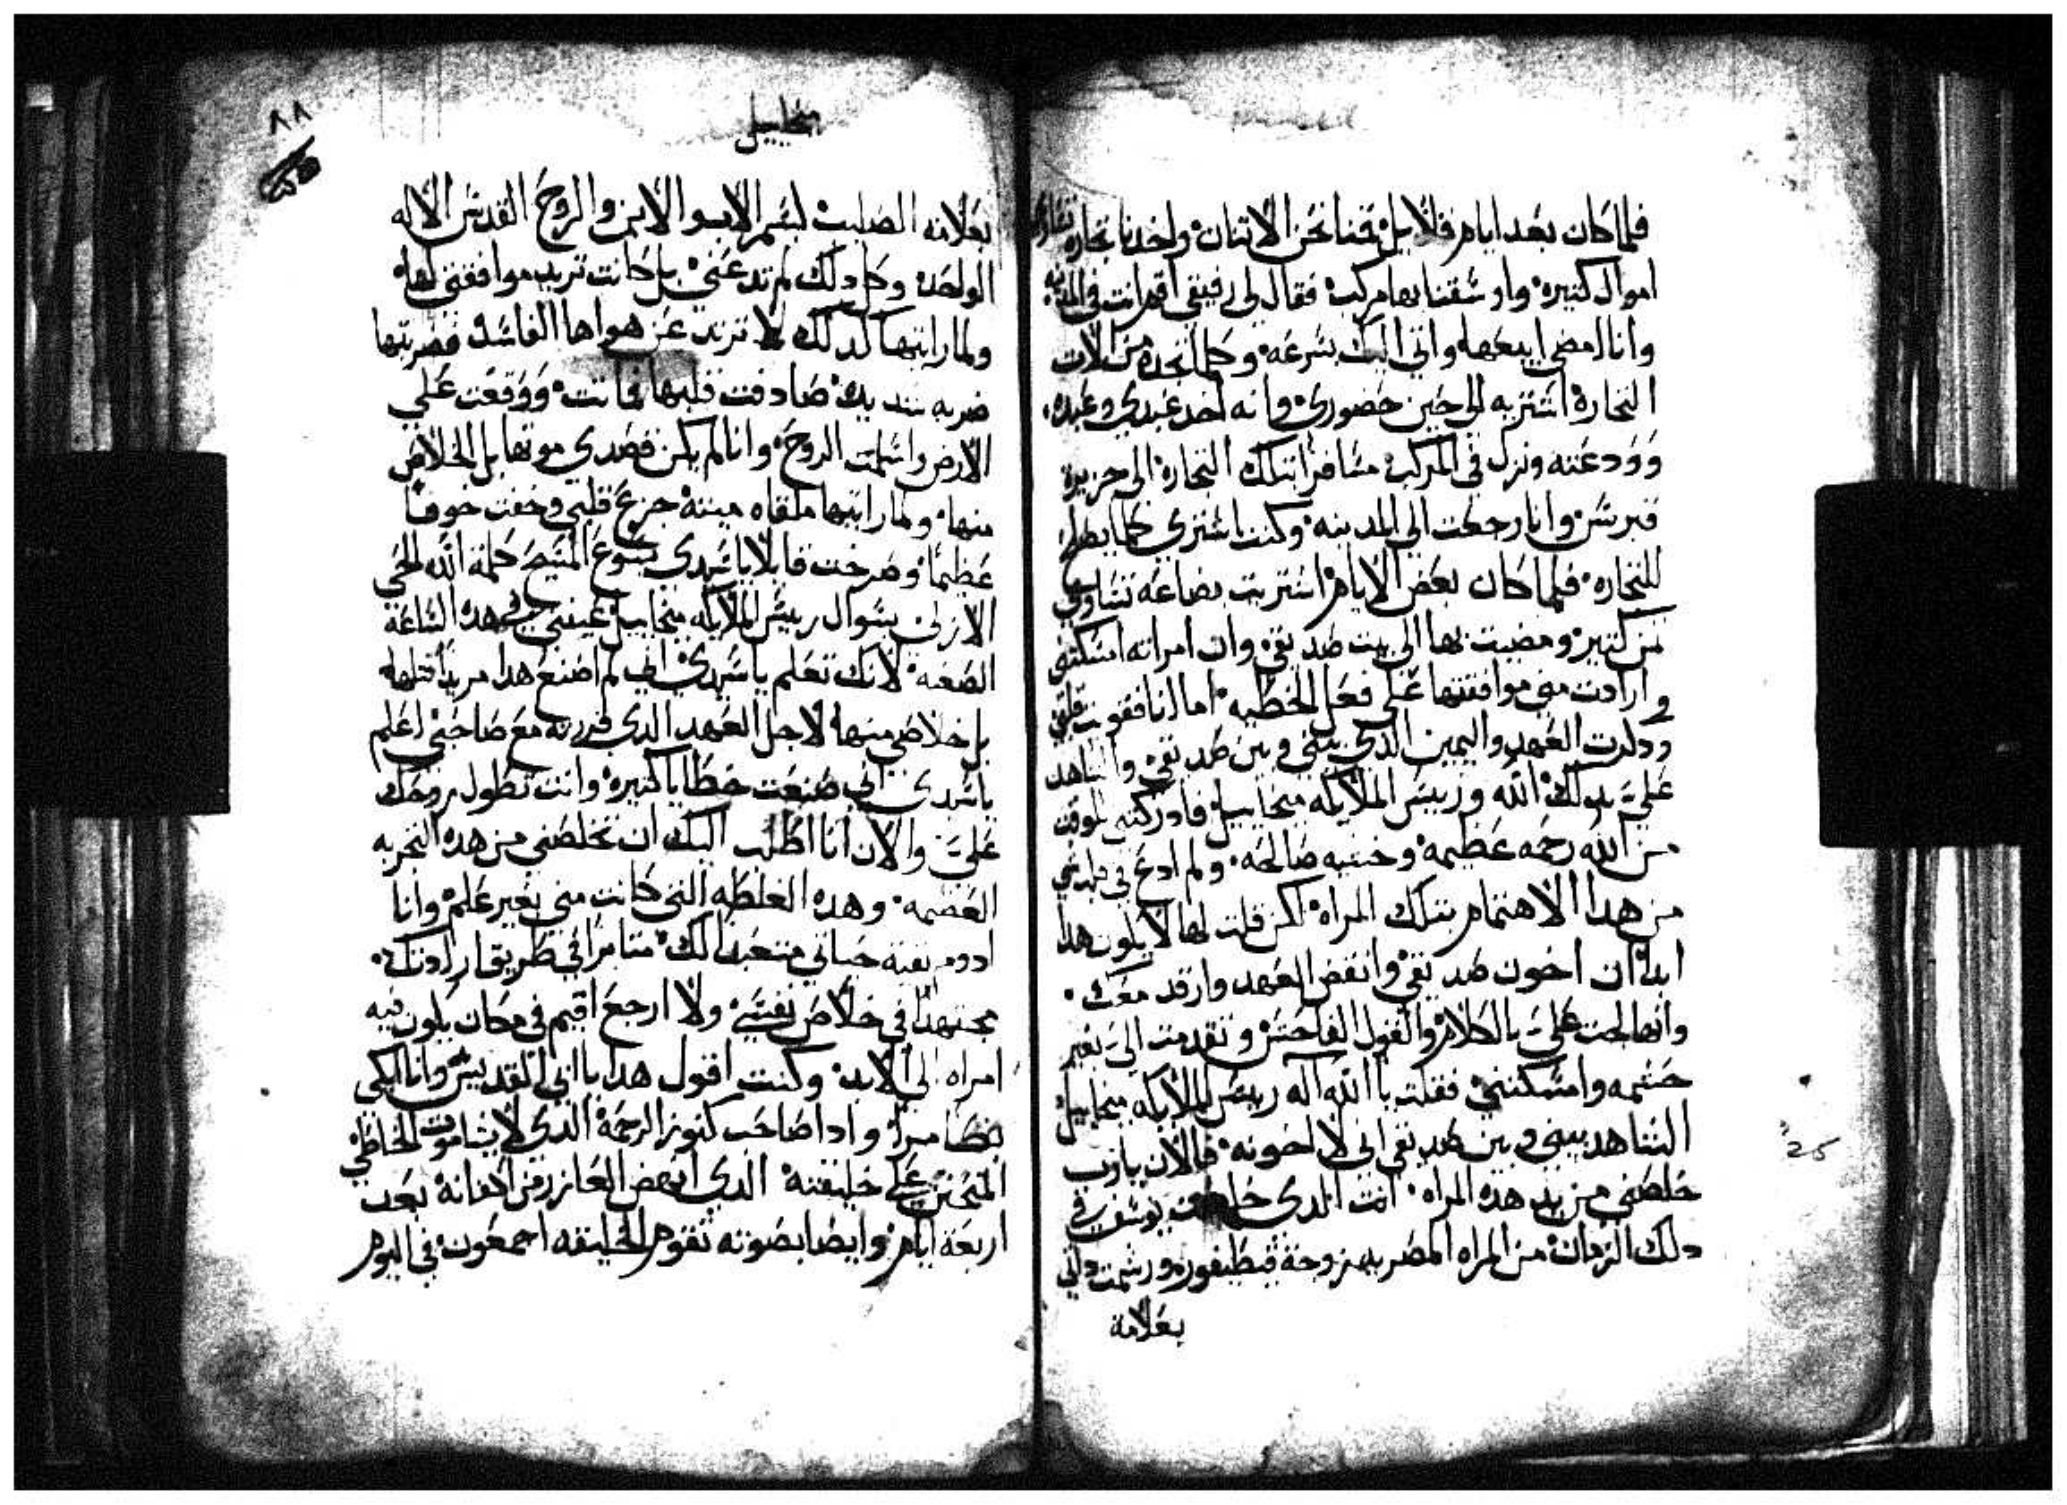 فلما كان بعد ايام قلايل قمنا نحن الاتنان واخدنا تجاره تساوي
اموال كتيره واوسقنا بها مركب فقال لي رفيقي اقم انت في المدينه
وانا امضي ابيعها واتي اليك بسرعه وكلما تجده من الات
التجارة اشتريه الى حين حضوري وانه اخد عبدي وعبده
وودعته ونزل في المركب مسافرا بتلك التجارة الى جزيرة
قبرس وانا رجعت الى المدينه وكنت اشتري كما يصلح
للتجاره فلما كان بعض الايام اشتريت بضاعه تساوي
تمن كتير ومضيت بها الى بيت صديقي وان امراته امسكتني
وارادت مني موافقتها على فعل الخطيه اما انا فقويت قلبي
ودكرت العهد واليمين الدي بيني وبين صديقي والشاهد
علي بدلك الله ورييس الملايكه ميخاييل فادركتني للوقت
من الله رحمه عظيمه وخشيه صالحه ولم ادع في قلبي شي
من هدا الاهتمام بتلك المراه لكن قلت لها لا يكون هدا
ابدا ان اخون صديقي وانقض العهد وارقد معك
وانها لجت علي بالكلام والقول الفاحش وتقدمت الي بغير
حشمه وامسكتني فقلت يا الله اله رييس الملايكه ميخاييل
الشاهد بيني وبين صديقي اني لا اخونه فالان يارب
خلصني من يد هده المراه انت الدي خلصت يوسف في
دلك الزمان من المراه المصريه زوجة قيطيفور ورشمت داتي
بعلامة
ميخاييل
٨٨
بعلامة الصليب لبسم الاب والابن والروح القدس الاله
الواحد وكل دلك لم تدعني بل كانت تريد موافقتي لها
ولما رايتها كدلك لا ترتد عن هواها الفاسد فضربتها
ضربه شديده صادفت قلبها فماتت ووقعت على
الارض واسلمت الروح وانا لم يكن قصدي موتها بل الخلاص
منها ولما رايتها ملقاه ميتة جزع قلبي وخفت خوفا
عظيما وصرخت قايلا يا سيدي يسوع المسيح كلمة الله الحي
الازلي بسوال رييس الملايكه ميخاييل عينني في هده الساعه
الصعبه لانك تعلم يا سيدي اني لم اصنع هدا مريدا قتلها
بل خلاصي منها لاجل العهد الدي قررته مع صاحبي اعلم
يا سيدي اني صنعت خطايا كتيره وانت تطول روحك
علي والان انا اطلب اليك ان تخلصني من هده التجربه
العضيمه وهده الغلطه التي كانت مني بغير علم وانا
ادوم بقية حياتي متعبدا لك متابرا في طريق ارادتك
مجتهدا في خلاص نفسي ولا ارجع اقيم في مكان يكون فيه
امراه الى الابد وكنت اقول هدا يا ابي القديس وانا ابكي
بكا مرا وادا صاحب كنوز الرحمة الدي لا يشا موت الخاطي
المتحنن على خليقته الدي انهض العازر من اكفانه بعد
اربعة ايام وايضا بصوته تقوم الخليقه اجمعون في اليوم
25